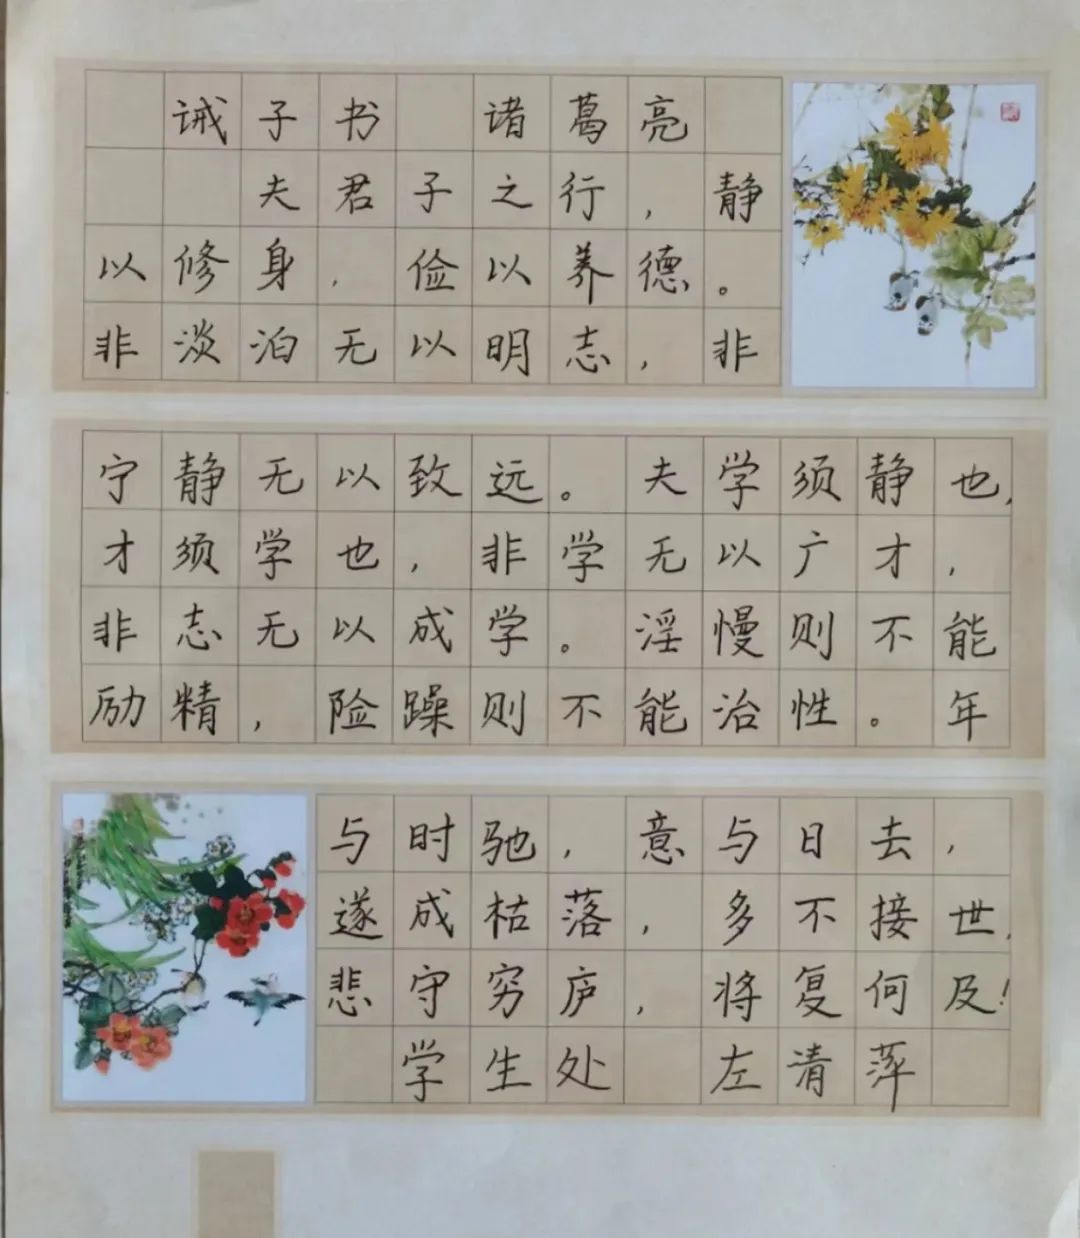 诫子书 诸葛亮
夫君子之行，静
以修身，俭以养德。
非淡泊无以明志，非
宁静无以致远。夫学须静也，
才须学也，非学无以广才，
非志无以成学。淫慢则不能
励精，险躁则不能治性。年
与时驰，意与日去，
遂成枯落，多不接世，
悲守穷庐，将复何及！
学生处 左清萍